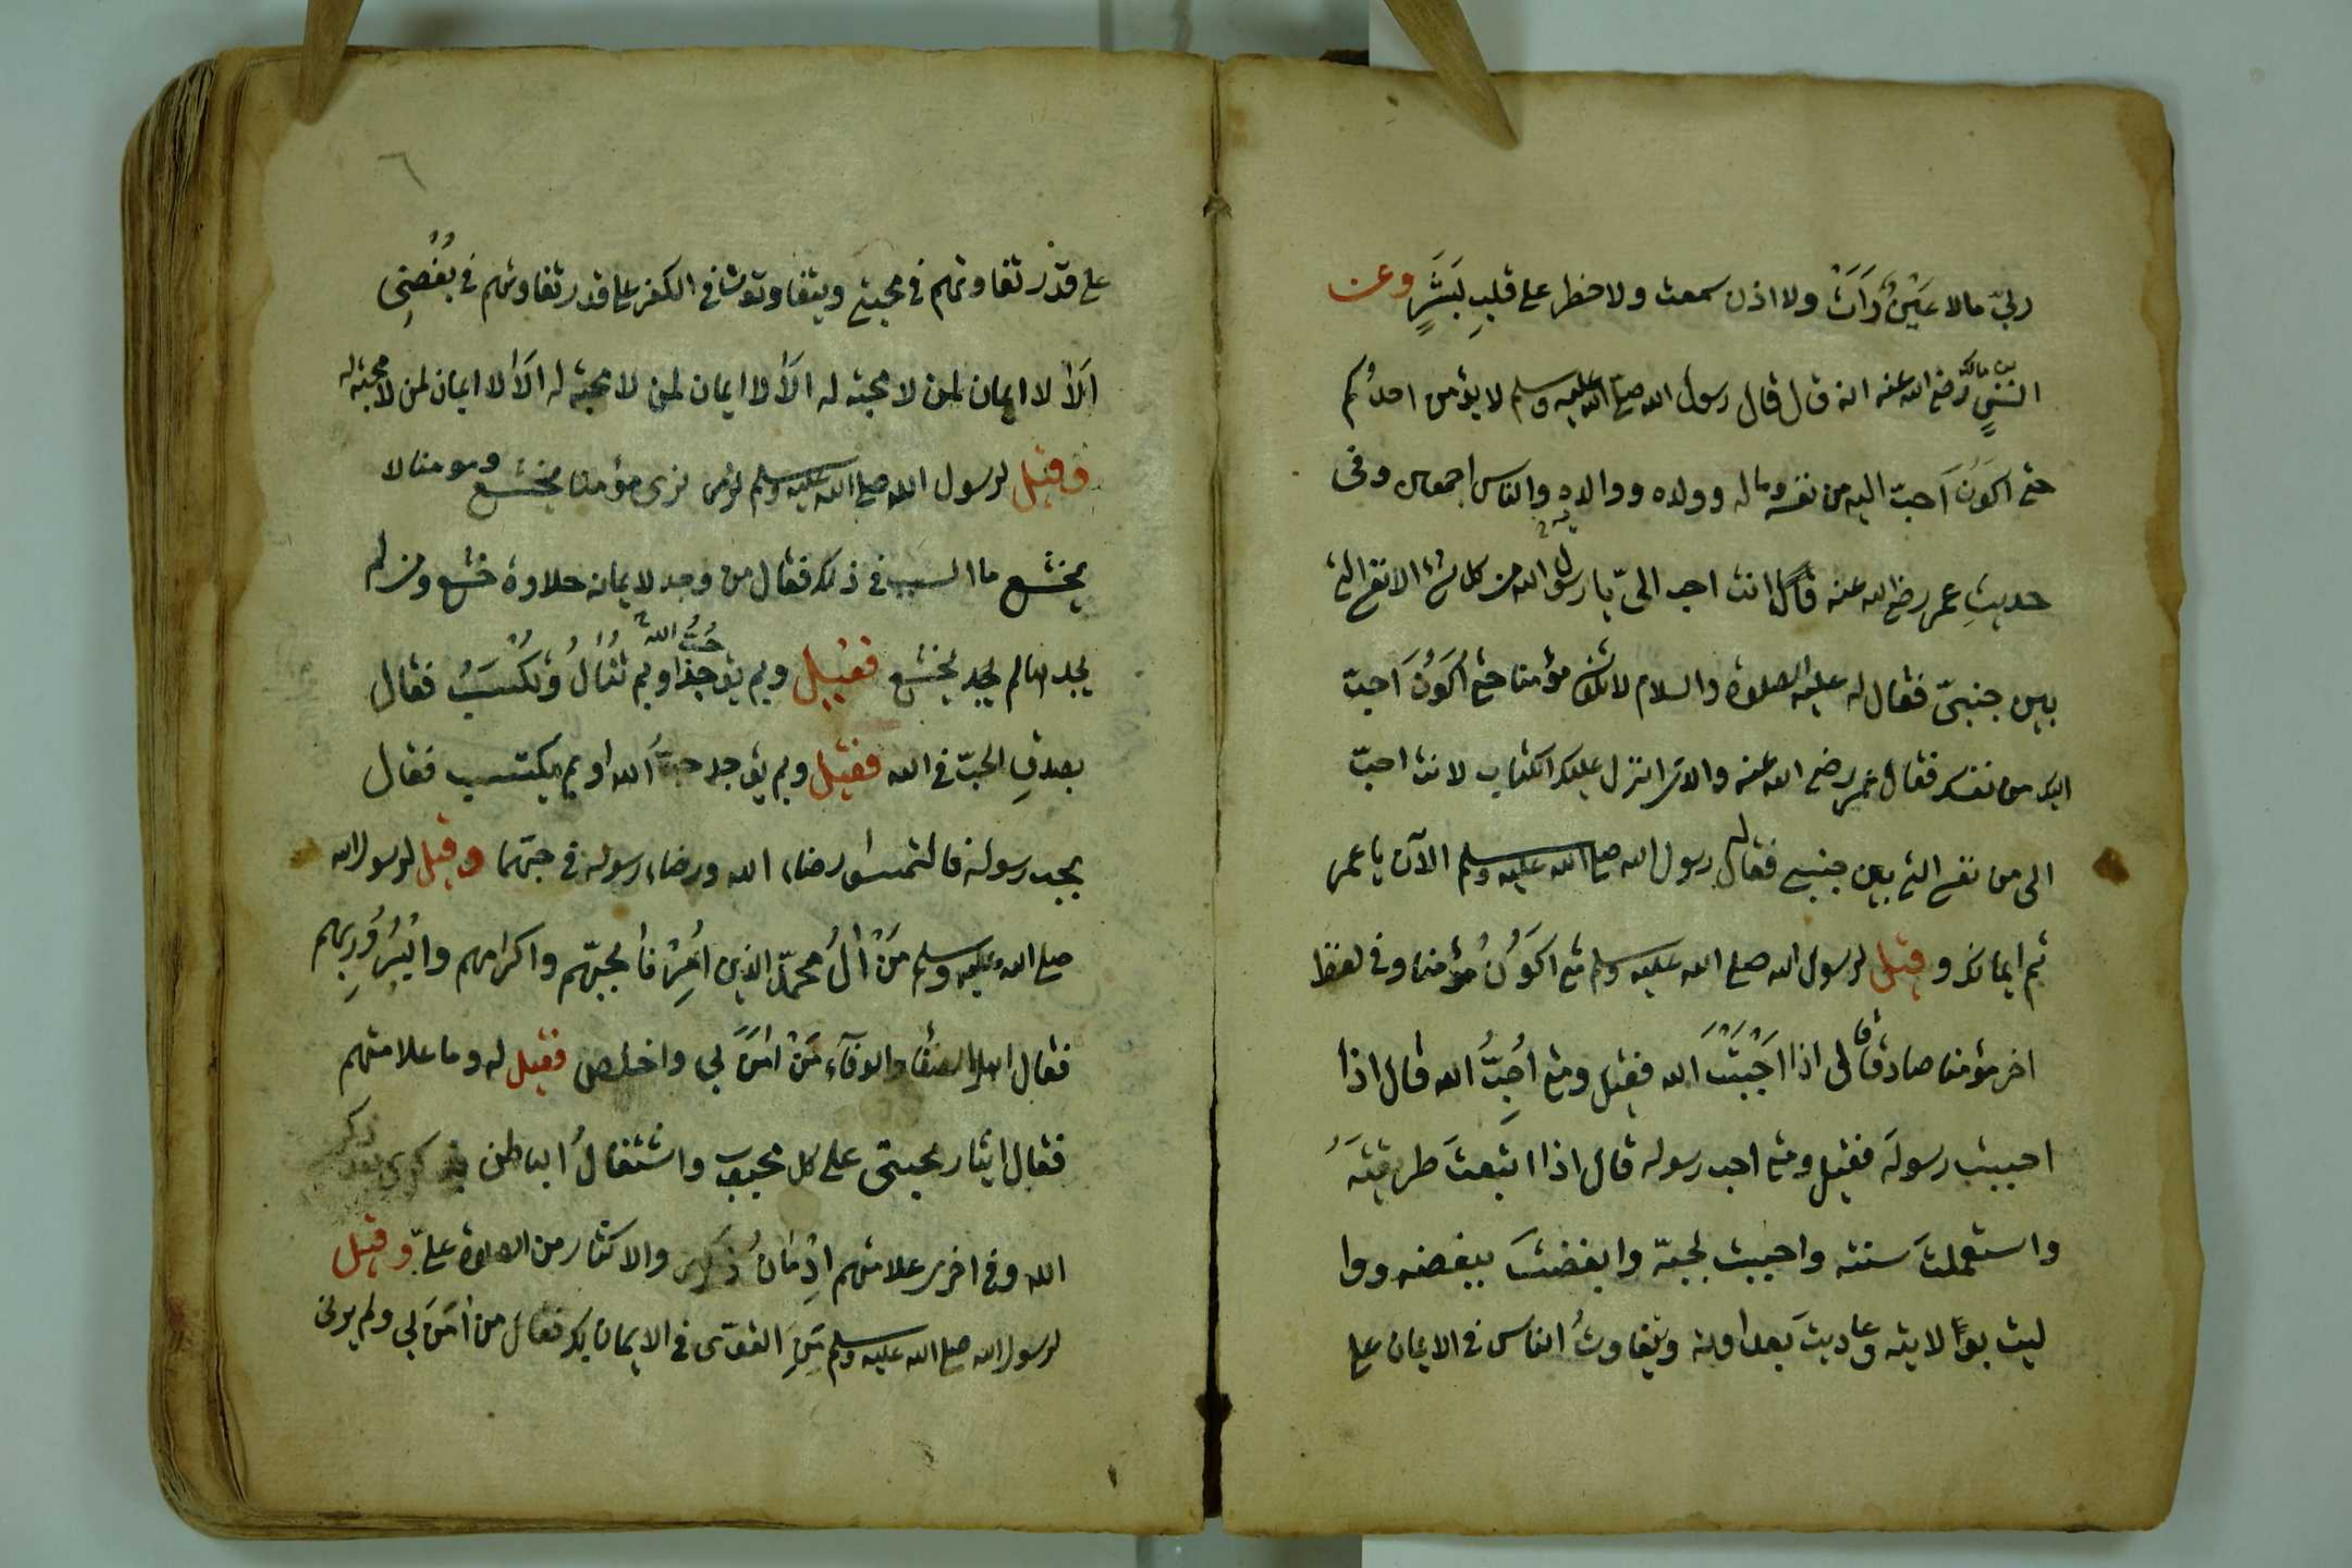 ربي مالا عَيْنٌ رَأَتْ ولا اذن سمعت ولا خطر على قلبِ بَشَرٍ وعن
انسٍ بن مالك رضي الله عنه انه قال قال رسول الله صلى الله عليه وسلم لا يؤمن احدُكم
حتى اكونَ اَحبّ اليه من نفسه وماله وولده ووالده والناس اجمعين وفي
حديثِ عمر رضي الله عنه قال انت احب اليّ يا رسول الله من كل شئ الا نفسي التي
بين جنبيّ فقال له عليه الصلوة والسلام لا تكون مؤمنا حتى اكونَ اَحبّ
اليك من نفسك فقال عمر رضي الله عنه والذي انزل عليك الكتاب لانت احبّ
الي من نفسي التي بين جنبيي فقال له رسول الله صلى الله عليه وسلم الآن يا عمر
تم ايمانك وقيل لرسول الله صلى الله عليه وسلم متى اكونُ مؤمنا وفي لفظ
اخر مؤمنا صادقا قال اذا اَحْبَبْتَ الله فقيل ومتى اُحِبُّ الله قال اذا
احببت رسولَه فقيل ومتى احب رسوله قال اذا اتبعتَ طريقتَه
واستعملتَ سنته واحببت بحبّه وابغضتَ ببغضه ووا
ليت بولايته وعاديتَ بعداوته ويتفاوتُ الناس في الايمان على
على قدر تفاوتهم في محبتي ويتفاوتون في الكفر على قدر تفاوتهم في بُغْضِي
اَلاَ لا ايمان لمن لا محبة له اَلاَ لا ايمان لمن لا محبة له اَلاَ لا ايمان لمن لا محبة له
وقيل لرسول الله صلى الله عليه وسلم نرى مؤمنا يخشع ومومنا لا
يخشع ما السبب في ذلك فقال من وجد لايمانه حلاوة خشع ومن لم
يجدها لم يخشع فقيل وبم توجد او بم تُنَالُ وتُكْتَسَبُ فقال
بصدقِ الحبّ في الله فقيل وبم يوجد حبُّ الله او بم يكتسب فقال
بحب رسوله فالتمسوا رضاء الله ورضاء رسوله في حبّهما وقيل لرسول الله
صلى الله عليه وسلم مَنْ الُ محمدٍ الذين اُمِرْنا بحبّهم واكرامهم والبُرُورِ بهم
فقال اهل الصفا والوفآء مَنْ امَنَ بي واخلص فقيل له وما علامتهم
فقال ايثار محبتي على كل محبوب واشتغالُ الباطن بذكري بعد ذكر
الله وفي اخرى علامتهم اِدْمَانُ ذكري والاكثار من الصلوة عليّ وقيل
لرسول الله صلى الله عليه وسلم مَنِ القوّى في الايمان بك فقال من امَنَ بي ولم يرني